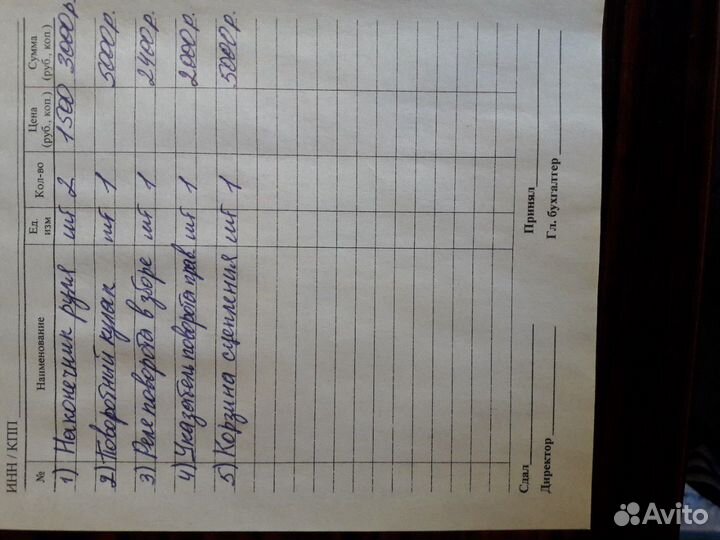 ИНН / КПП
№ Наименование Ед. изм Кол-во Цена (руб., коп.) Сумма (руб., коп.)
1) Наконечник руля шт 2 1500 3000р.
2) Поворотний кулак шт 1 5000р.
3) Реле поворота в зборе шт 1 2400р.
4) Указатель поворота прав шт 1 2000р.
5) Корзина сцепления шт 1 5000р.
Сдал Принял
Директор Гл. бухгалтер
Avito